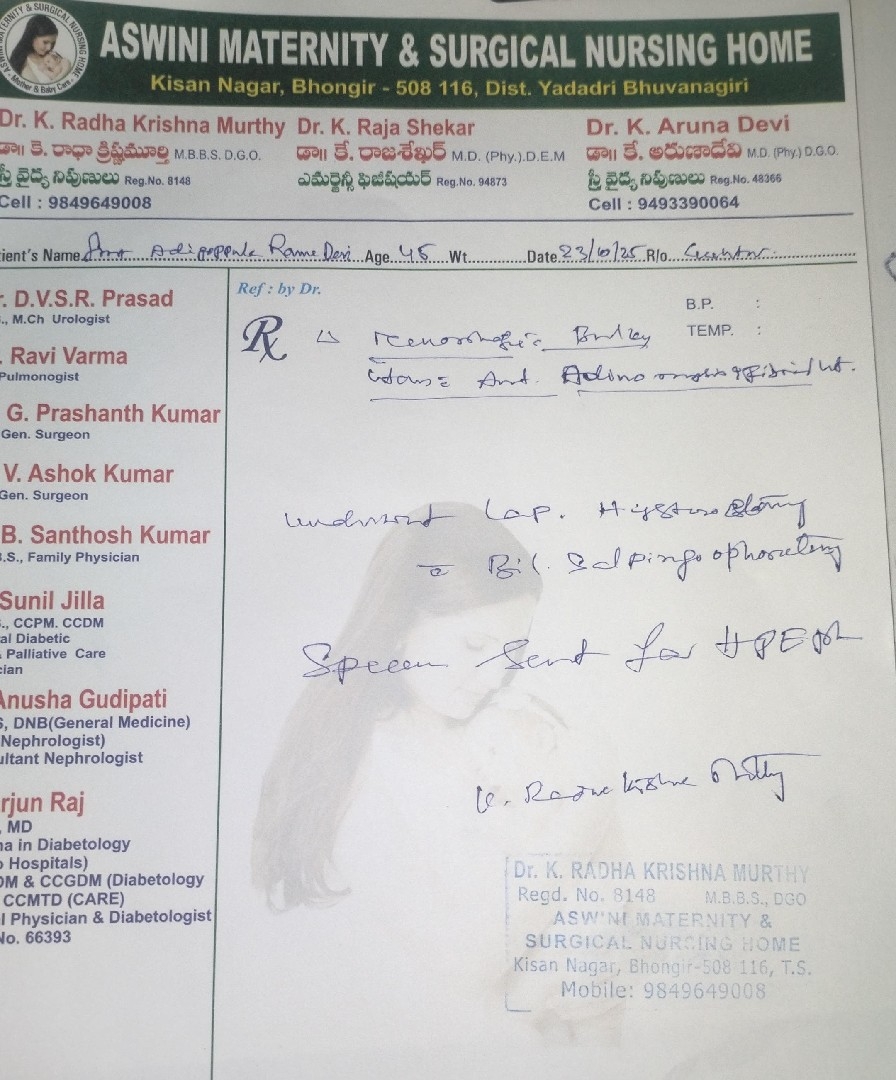 ASWINI MATERNITY & SURGICAL NURSING HOME
Mother & Baby Care
ASWINI MATERNITY & SURGICAL NURSING HOME
Kisan Nagar, Bhongir - 508 116, Dist. Yadadri Bhuvanagiri
Dr. K. Radha Krishna Murthy Dr. K. Raja Shekar Dr. K. Aruna Devi
డా॥ కె. రాధా క్రిష్ణమూర్తి M.B.B.S. D.G.O. డా॥ కే. రాజశేఖర్ M.D. (Phy.).D.E.M డా॥ కే. అరుణాదేవి M.D. (Phy.) D.G.O.
స్త్రీ వైద్య నిపుణులు Reg.No. 8148 ఎమర్జెన్సీ ఫిజీషియర్ Reg.No. 94873 స్త్రీ వైద్య నిపుణులు Reg.No. 48366
Cell : 9849649008 Cell : 9493390064
ient's Name Rama Devi Age 45 Wt. Date 23/6/25 R/o.
r. D.V.S.R. Prasad Ref : by Dr. B.P. :
., M.Ch Urologist Rx TEMP. :
Menorrhagia Bulky
. Ravi Varma
Pulmonogist
G. Prashanth Kumar
Gen. Surgeon
V. Ashok Kumar
Gen. Surgeon
underwent Lap. Hysterectomy
B. Santhosh Kumar
.S., Family Physician
Bil. Salpingo ophorectomy
Sunil Jilla
., CCPM. CCDM
al Diabetic
Palliative Care
cian
Sent for HPE
Anusha Gudipati
S, DNB(General Medicine)
Nephrologist)
ultant Nephrologist
K. Radha Krishna Murthy
rjun Raj
, MD
na in Diabetology
Hospitals)
DM & CCGDM (Diabetology
CCMTD (CARE)
l Physician & Diabetologist
No. 66393
Dr. K. RADHA KRISHNA MURTHY
Regd. No. 8148 M.B.B.S., DGO
ASWINI MATERNITY &
SURGICAL NURSING HOME
Kisan Nagar, Bhongir-508 116, T.S.
Mobile: 9849649008